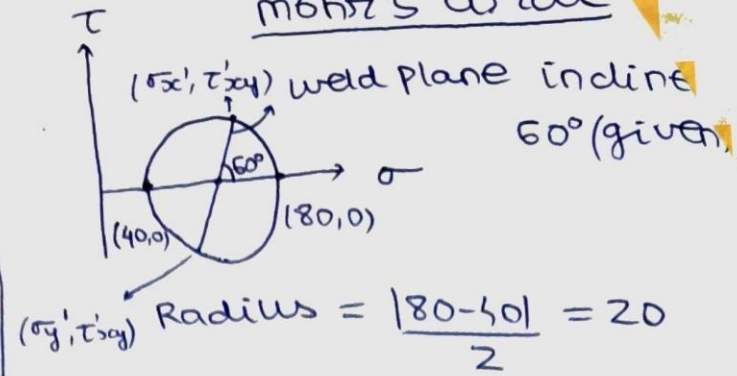 τ
(σx', τ'xy) weld plane incline
60° (given)
60°
σ
(40,0)
(80,0)
(σy', τ'xy) Radius = |80-40| / 2 = 20